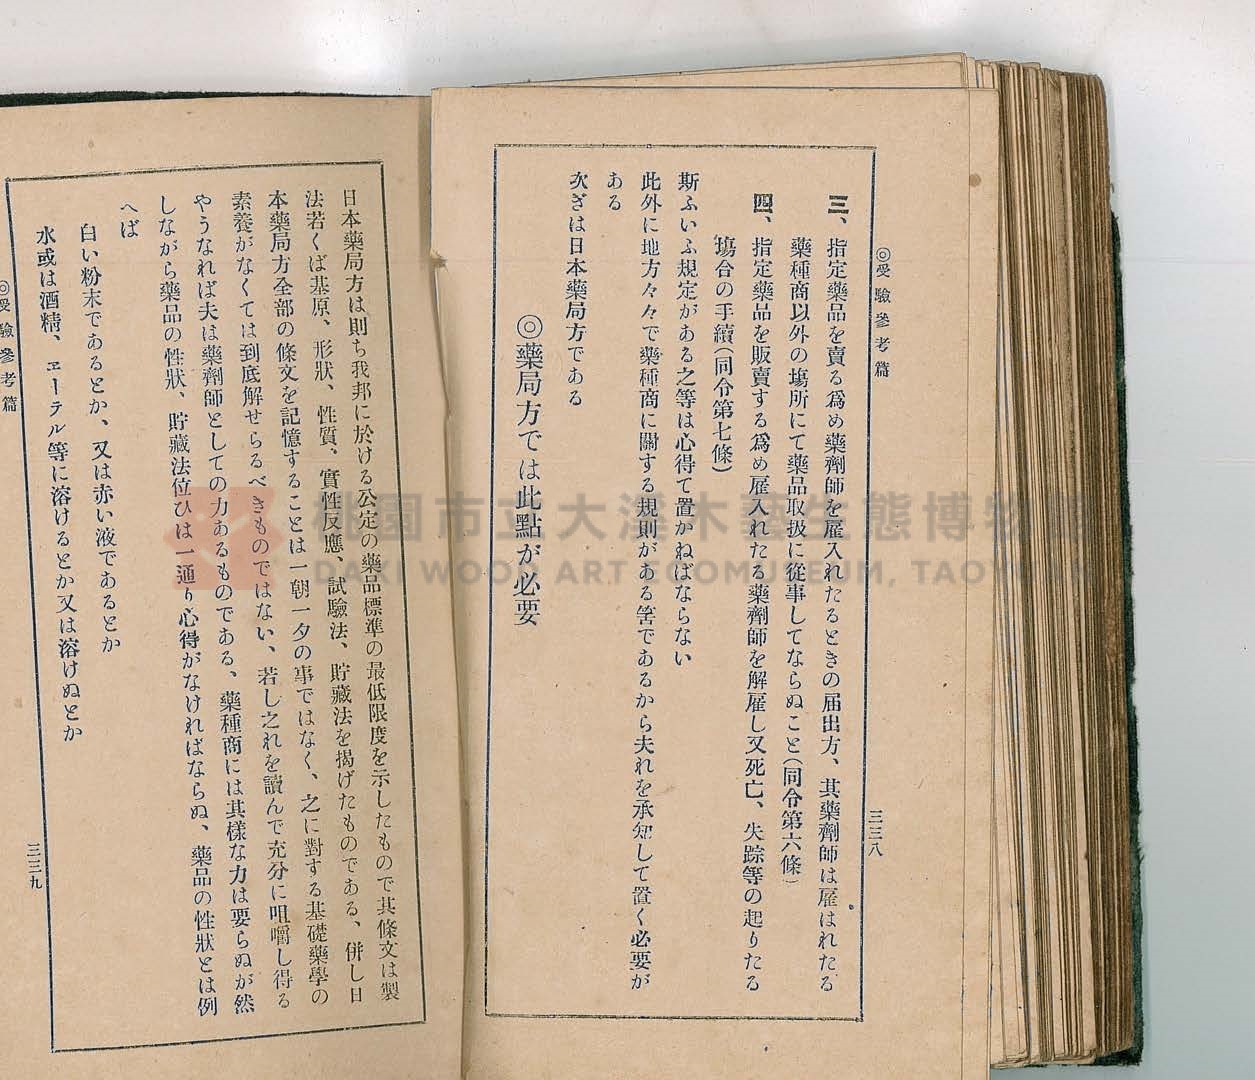 ◎受驗參考篇
三三八
三、指定藥品を賣る爲め藥劑師を雇入れたるときの届出方、其藥劑師は雇はれたる
藥種商以外の塲所にて藥品取扱に從事してならぬこと(同令第六條)
四、指定藥品を販賣する爲め雇入れたる藥劑師を解雇し又死亡、失踪等の起りたる
塲合の手續(同令第七條)
斯ふいふ規定がある之等は心得て置かねばならない
此外に地方々々で藥種商に關する規則がある筈であるから夫れを承知して置く必要が
ある
次ぎは日本藥局方である
◎藥局方では此點が必要
日本藥局方は則ち我邦に於ける公定の藥品標準の最低限度を示したもので其條文は製
法若くば基原、形狀、性質、實性反應、試驗法、貯藏法を揭げたものである、併し日
本藥局方全部の條文を記憶することは一朝一夕の事ではなく、之に對する基礎藥學の
素養がなくては到底解せらるべきものではない、若し之れを讀んで充分に咀嚼し得る
やうなれば夫は藥劑師としての力あるものである、藥種商には其樣な力は要らぬが然
しながら藥品の性狀、貯藏法位ひは一通り心得がなければならぬ、藥品の性狀とは例
へば
白い粉末であるとか、又は赤い液であるとか
水或は酒精、エーテル等に溶けるとか又は溶けぬとか
◎受驗參考篇
三三九
桃園市立大溪木藝生態博物館
DAXI WOOD ART ECOMUSEUM, TAOYU